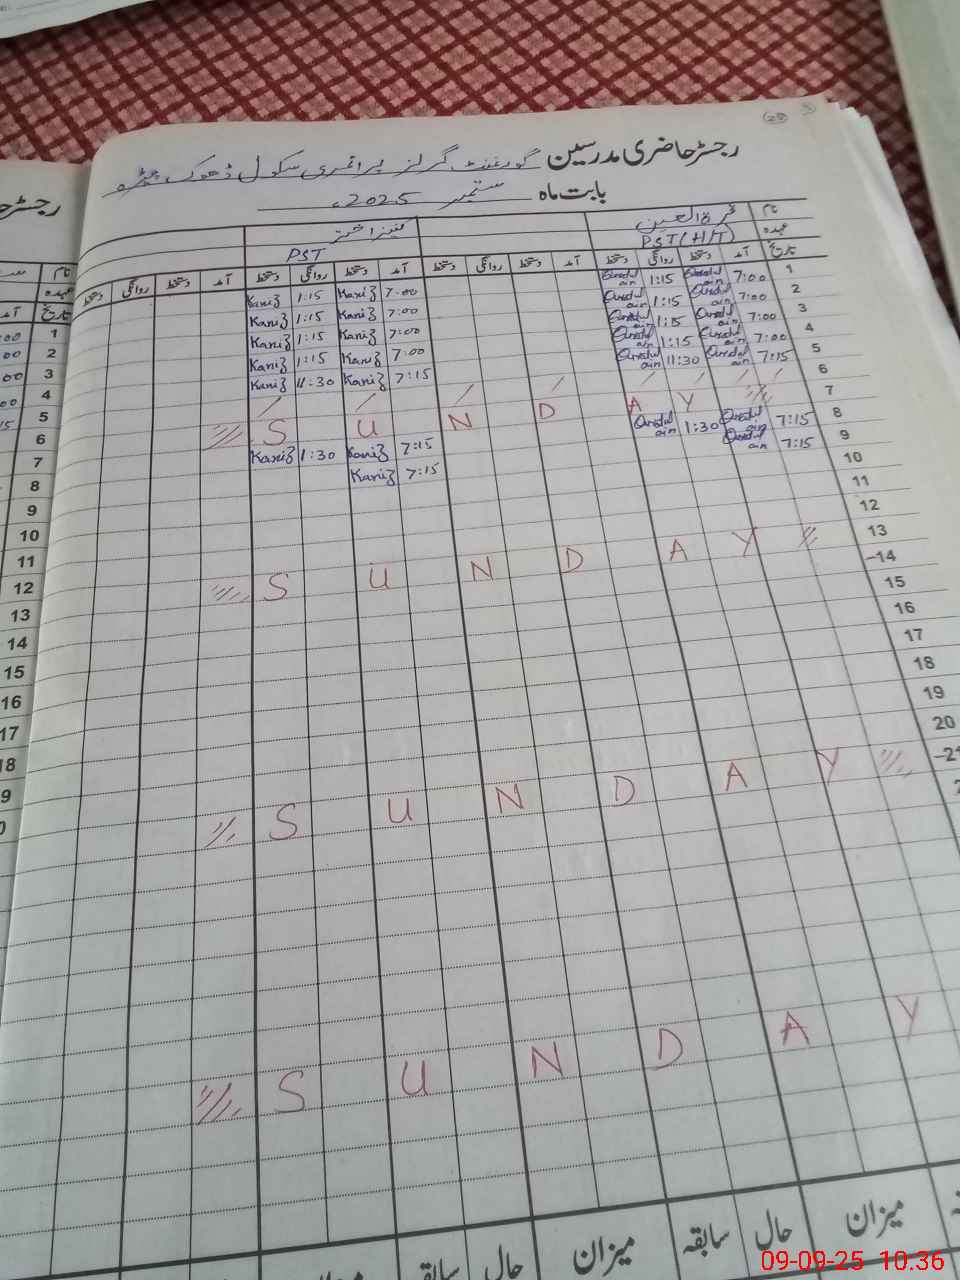 رجسٹر حاضری مدرسین گورنمنٹ گرلز پرائمری سکول ڈھوک
بابت ماہ ستمبر 2025ء
نام قرۃ العین کنیز اختر
عہدہ PST (H/T) PST
تاریخ آمد دستخط روانگی دستخط آمد دستخط روانگی دستخط آمد دستخط روانگی دستخط آمد دستخط روانگی دستخط
1 7:00 Quratul ain 1:15 Quratul ain 7:00 Kaniz 1:15 Kaniz
2 7:00 Quratul ain 1:15 Quratul ain 7:00 Kaniz 1:15 Kaniz
3 7:00 Quratul ain 1:15 Quratul ain 7:00 Kaniz 1:15 Kaniz
4 7:00 Quratul ain 1:15 Quratul ain 7:00 Kaniz 1:15 Kaniz
5 7:15 Quratul ain 11:30 Quratul ain 7:15 Kaniz 11:30 Kaniz
6
7 S U N D A Y
8 7:15 Quratul ain 1:30 Quratul ain 7:15 Kaniz 1:30 Kaniz
9 7:15 Quratul ain 7:15 Kaniz
10
11
12
13
14 S U N D A Y
15
16
17
18
19
20
21 S U N D A Y
S U N D A Y
میزان حال سابقہ میزان حال
رجسٹر
نام
عہدہ
تاریخ آمد
1
2
3
4
5
6
7
8
9
10
11
12
13
14
15
16
17
18
09-09-25 10:36